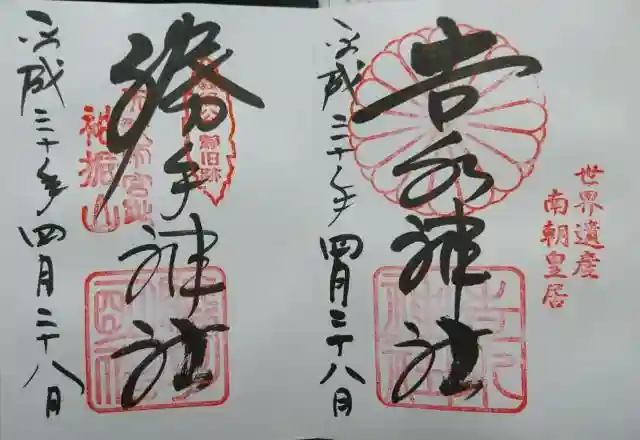 世界遺産
南朝皇居
吉水神社
平成三十年四月二十八日
勝手神社
袖振山
平成三十年四月二十八日